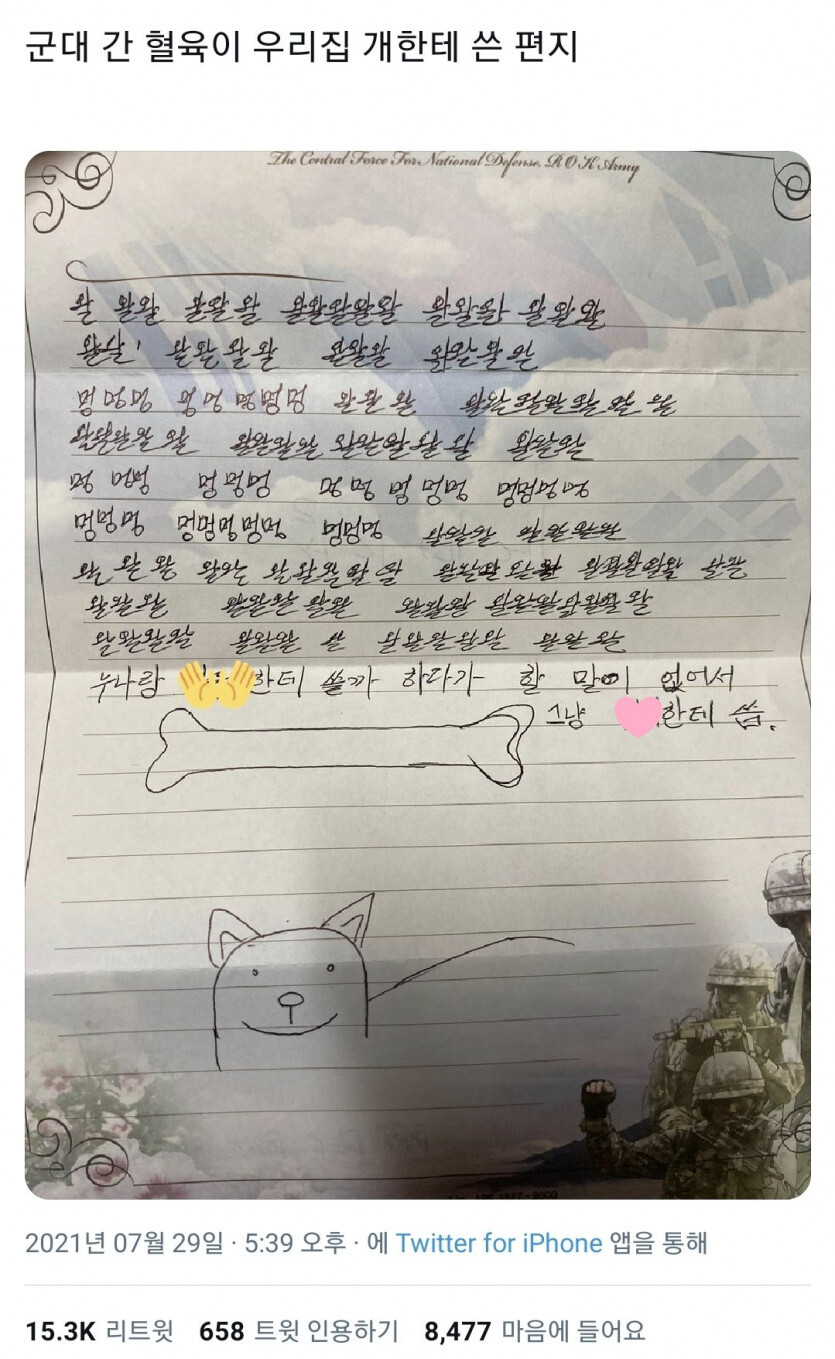 군대 간 혈육이 우리집 개한테 쓴 편지
The Central Force For National Defense, R.O.K Army
왈 왈왈 왈왈왈 왈왈왈왈왈 왈왈왈 왈왈왈
왈왈! 왈왈왈왈 왈왈왈 왈왈왈왈
멍멍멍 멍멍 멍멍멍 왈왈왈 왈왈왈왈왈 왈왈
왈왈왈왈왈 왈왈왈왈 왈왈왈왈왈 왈왈왈
멍 멍멍 멍멍멍 멍멍 멍 멍멍 멍멍멍멍
멍멍멍 멍멍멍멍멍 멍멍멍 왈왈왈 왈왈왈왈
왈왈왈 왈왈 왈왈왈왈왈 왈왈왈 왈왈 왈왈왈왈왈 왈왈
왈왈왈 왈왈왈 왈왈 왈왈왈 왈왈왈왈왈왈 왈
왈왈왈왈 왈왈왈 왈 왈왈왈왈왈 왈왈왈
누나랑 한테 쓸까 하다가 할 말이 없어서
그냥 한테 씀.
2021년 07월 29일 · 5:39 오후 · 에 Twitter for iPhone 앱을 통해
15.3K 리트윗 658 트윗 인용하기 8,477 마음에 들어요